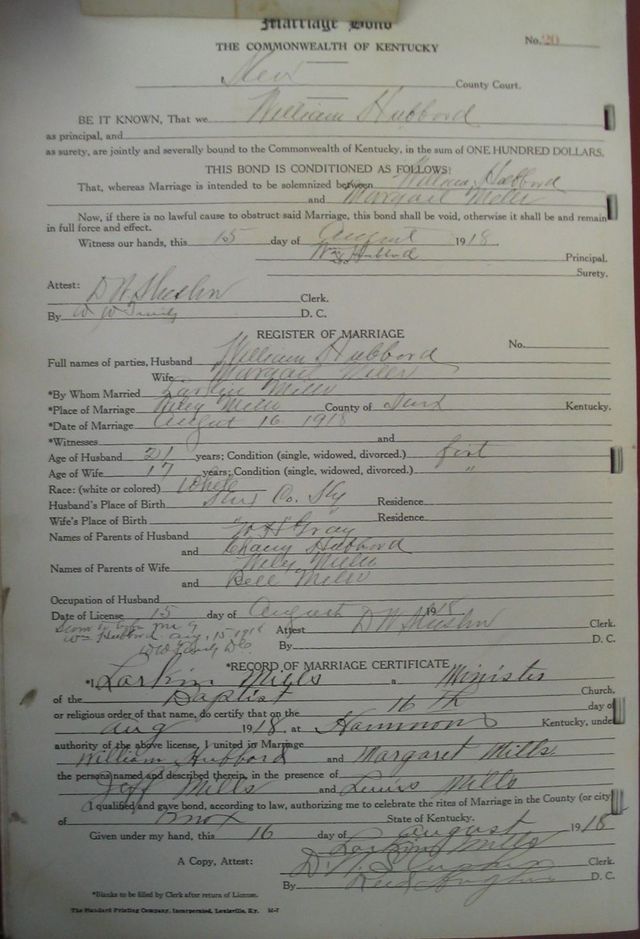 Marriage Bond
THE COMMONWEALTH OF KENTUCKY
No. 20
Knox County Court.
BE IT KNOWN, That we William Hubbord
as principal, and
as surety, are jointly and severally bound to the Commonwealth of Kentucky, in the sum of ONE HUNDRED DOLLARS.
THIS BOND IS CONDITIONED AS FOLLOWS:
That, whereas Marriage is intended to be solemnized between William Hubbord
and Margaret Mills
Now, if there is no lawful cause to obstruct said Marriage, this bond shall be void, otherwise it shall be and remain
in full force and effect.
Witness our hands, this 15 day of August 1918
Wm Hubbord Principal.
Surety.
Attest:
Clerk.
By D. C.
REGISTER OF MARRIAGE
No.
Full names of parties, Husband William Hubbord
Wife Margaret Mills
*By Whom Married Larkin Mills
*Place of Marriage Wiley Mills County of Knox Kentucky.
*Date of Marriage August 16 1918
*Witnesses and
Age of Husband 21 years; Condition (single, widowed, divorced.) first
Age of Wife 17 years; Condition (single, widowed, divorced.) "
Race: (white or colored) White
Husband's Place of Birth Knox Co. Ky Residence
Wife's Place of Birth " " " Residence
Names of Parents of Husband Gray
and Hubbord
Names of Parents of Wife Wiley Mills
and Bell Mills
Occupation of Husband
Date of License 15 day of August 1918
Attest Clerk.
Sworn to before me by
Wm Hubbord Aug. 15 1918
D.C.
By D. C.
*RECORD OF MARRIAGE CERTIFICATE
*I Larkin Mills a Minister
of the Baptist Church,
or religious order of that name, do certify that on the 16th day of
Aug 1918 at Hammons Kentucky, under
authority of the above license, I united in Marriage
William Hubbord and Margaret Mills
the persons named and described therein, in the presence of
Jeff Mills and Lewis Mills
I qualified and gave bond, according to law, authorizing me to celebrate the rites of Marriage in the County (or city)
of Knox State of Kentucky.
Given under my hand, this 16 day of August 1918
Larkin Mills
A Copy, Attest: Clerk.
By D. C.
*Blanks to be filled by Clerk after return of License.
The Standard Printing Company, Incorporated, Louisville, Ky. M-7